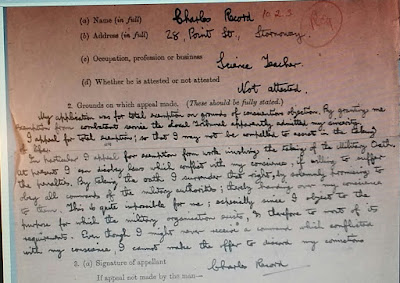 (a) Name (in full) Charles Record 10 2 3
(b) Address (in full) 28, Point St., Stornoway.
(c) Occupation, profession or business Science Teacher.
(d) Whether he is attested or not attested Not attested.
2. Grounds on which appeal made. (These should be fully stated.)
My application was for total exemption on grounds of conscientious objection. By granting me
exemption from combatant service the Local Tribunal apparently admitted my sincerity.
I appeal for total exemption; so that I may not be compelled to assist in the taking
of life.
In particular I appeal for exemption from work involving the taking of the Military Oath.
At present I can disobey laws which conflict with my conscience, if willing to suffer
the penalties. By taking the oath I surrender that right, by solemnly promising to
obey all commands of the military authorities; thereby handing over my conscience
to them. This is quite impossible for me; especially since I object to the
purpose for which the military organisation exists, & therefore to most of its
requirements. Even though I might never receive a command which conflicted
with my conscience I cannot make the offer to discard my convictions
3. (a) Signature of appellant Charles Record
If appeal not made by the man—